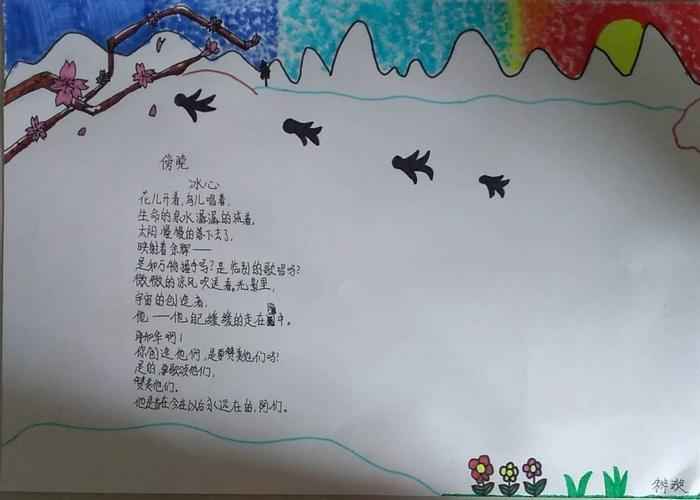 傍晚
冰心
花儿开着,鸟儿唱着,
生命的泉水潺潺的流着,
太阳慢慢的落下去了,
映射着余辉——
是和万物握手吗?是临别的歌唱吗?
微微的凉风吹送着,光影里,
宇宙的创造者,
他——他自己缓缓的走在园中。
耶和华啊!
你创造他们,是要赞美他们吗?
是的,要歌颂他们,
赞美他们。
他是昔在今在以后永远在的,阿们。